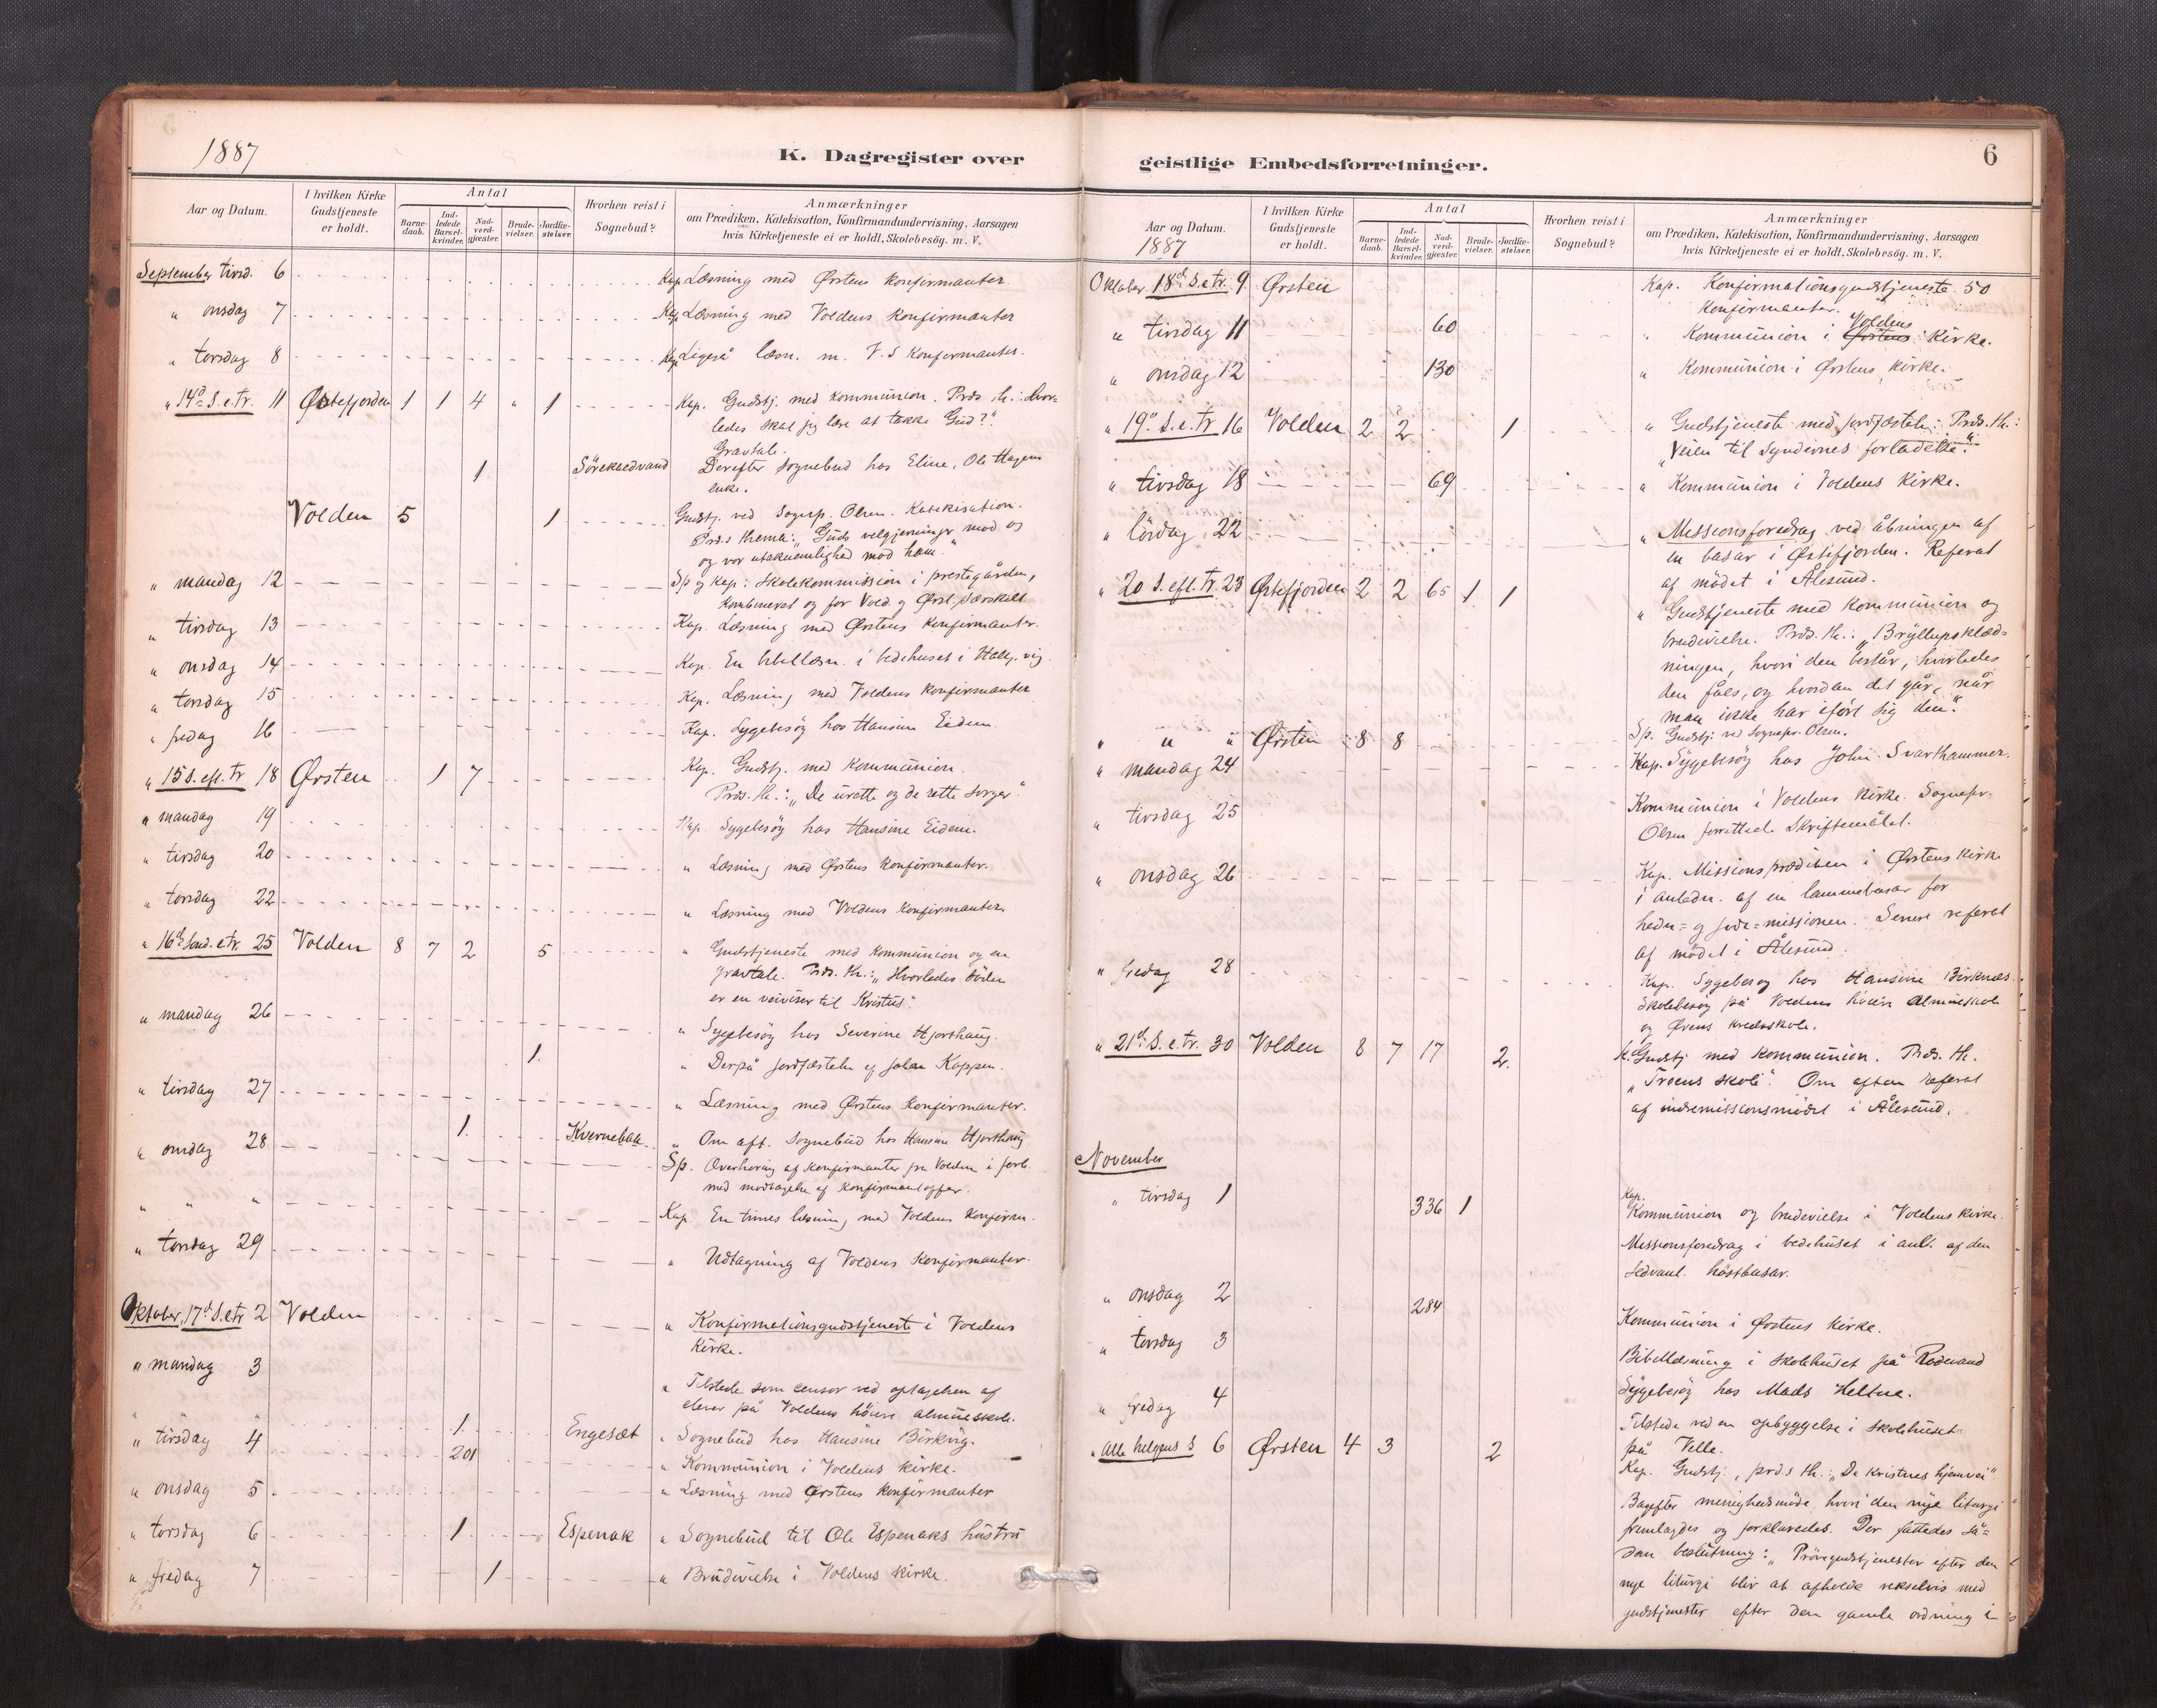 1887
K. Dagregister over
Aar og Datum.
I hvilken Kirke Gudstjeneste er holdt.
Antal
Barne-daab.
Ind-ledede Barsel-kvinder.
Nad-verd-gjæster.
Brude-vielser.
Jordfæ-stelser.
Hvorhen reist i Sognebud?
Anmærkninger
om Prædiken, Katekisation, Konfirmandundervisning, Aarsagen
hvis Kirketjeneste ei er holdt, Skolebesøg. m. V.
September tirsd. 6 Kap Læsning med Ørstens konfirmanter
" onsdag 7 Kap Læsning med Voldens konfirmanter
" torsdag 8 Kap Ligeså læsn. m. V.s konfermanter.
" 14d S. e. tr. 11 Østefjorden 1 1 4 " 1 Kap. Gudstj. med kommunion. Præds th.: Hvor-
ledes skal jeg lære at takke Gud?".
Gravtale.
1 Derefter sognebud hos Eline, Ole Hagens
enke.
Volden 5 1 Gudstj. ved Sognep. Olsen. Katekisation.
Præd.s thema: "Guds velgjerninger mod os
og vor utaknemlighed mod ham."
" mandag 12 Sp og Kap: Skolekommission i prestegården,
kombineret og for Vold. og Ørst. særskilt
" tirsdag 13 Kap. Læsning med Ørstens konfirmanter.
" onsdag 14 Kap. En bibellæsn. i bedehuset i
" torsdag 15 Kap. Læsning med Voldens konfirmanter
" fredag 16 Kap. Sygebesøg hos Hansine Eidem
" 15 S. eft. tr 18 Ørsten 1 7 Kap. Gudstj. med kommunion.
Præds. th.: "De urette og de rette sorger".
" mandag 19 Kap. Sygebesøg hos Hansine Eidem.
" tirsdag 20 " Læsning med Ørstens konfirmanter.
" torsdag 22 " Læsning med Voldens konfirmanter.
" 16d Sønd. e tr. 25 Volden 8 7 2 5 " Gudstjeneste med kommunion og en
gravtale. Præds. th.: "Hvorledes døden
er en veiviser til Kristus".
" mandag 26 " Sygebesøg hos Severine Hjorthaug.
1. " Derpå jordfæstelse af Johan Koppen.
" tirsdag 27 " Læsning med Ørstens konfirmanter.
" onsdag 28 1. " Om aft. sognebud hos Hansine Hjorthaug
Sp. Overhøring af konfirmanter fra Volden i forb.
med modtagelse af konfirmantoffer.
" " " Kap En times læsning med Voldens konfirm.
" torsdag 29 " Udtagning af Voldens konfirmanter.
Oktober, 17d S. e tr 2 Volden " Konfirmationsgudstjeneste i Voldens
kirke.
" mandag 3 " Tilstede som censor ved optagelsen af
elever på Voldens høiere almueskole.
" tirsdag 4 1. Engesæt " Sognebud hos Hansine
201 " Kommunion i Voldens kirke.
" onsdag 5 " Læsning med Ørstens konfirmanter
" torsdag 6 1 Espenak " Sognebud til Ole Espenaks hustru
" fredag 7 1 " Brudevielse i Voldens kirke.
geistlige Embedsforretninger.
6
Aar og Datum.
1887
I hvilken Kirke Gudstjeneste er holdt.
Antal
Barne-daab.
Ind-ledede Barsel-kvinder.
Nad-verd-gjæster.
Brude-vielser.
Jordfæ-stelser.
Hvorhen reist i Sognebud?
Anmærkninger
om Prædiken, Katekisation, Konfirmandundervisning, Aarsagen
hvis Kirketjeneste ei er holdt, Skolebesög. m. V.
Oktober 18d S. e tr. 9 Ørsten Kap. Konfirmationsgudstjeneste 50
konfirmanter.
" tirsdag 11 60 " Kommunion i Voldens kirke.
" onsdag 12 130 " Kommunion i Ørstens kirke.
" 19d S. e. tr 16 Volden 2 2 1 " Gudstjeneste med jordfæstelse: Præds. th.:
"Veien til syndernes forladelse".
" tirsdag 18 69 " Kommunion i Voldens kirke.
" lördag 22 " Missionsforedrag ved åbningen af
en basar i Østefjorden. Referat
af mödet i Ålesund.
" 20 S. eft. tr. 23 Østefjorden 2 2 65 1 1 " Gudstjeneste med kommunion og
brudevielse. Præds. th.: "Bryllupsklæd-
ningen, hvori den består, hvorledes
den fåes, og hvordan det går, når
man ikke har iført sig den".
" " " Ørsten 8 8 Sp. Gudstj. ved sognepr. Olsen.
" mandag 24 Kap. Sygebesøg hos John Svarthammer.
" tirsdag 25 Kommunion i Voldens kirke. Sognepr.
Olsen forrettede skriftemålet.
" onsdag 26 Kap. Missionsprædiken i Ørstens kirke
i anledn. af en lammebasar for
hedn- og jøde-missionen. Senere referat
af mödet i Ålesund.
" fredag 28 Kap. Sygebesøg hos Hansine Birknes.
Skolebesøg på Voldens høiere almueskole
og kredsskole.
" 21d S. e. tr. 30 Volden 8 7 17 2. K. Gudstj med kommunion. Præds. th.
"Troens skole". Om aften referat
af indremissionsmödet i Ålesund.
November
" tirsdag 1 336 1 Kap. Kommunion og brudevielse i Voldens kirke.
Missionsforedrag i bedehuset i anl. af den
sedvanl. høstbasar.
" onsdag 2 284 Kommunion i Ørstens kirke.
" torsdag 3 Bibellæsning i skolehuset på
Sygebesøg hos Mads Heltne.
" fredag 4 Tilstede ved en opbyggelse i skolehuset
på Velle.
" Alle helgens s 6 Ørsten 4 3 2 Kap. Gudstj., præd.s th.: "De kristnes hjemvei"
Bagefter menighedsmöde, hvori den nye liturgi
fremlagdes og forklaredes. Der fattedes så-
dan beslutning: "Prövegudstjenester efter den
nye liturgi blir at afholde vekselvis med
gudstjenester efter den gamle ordning i